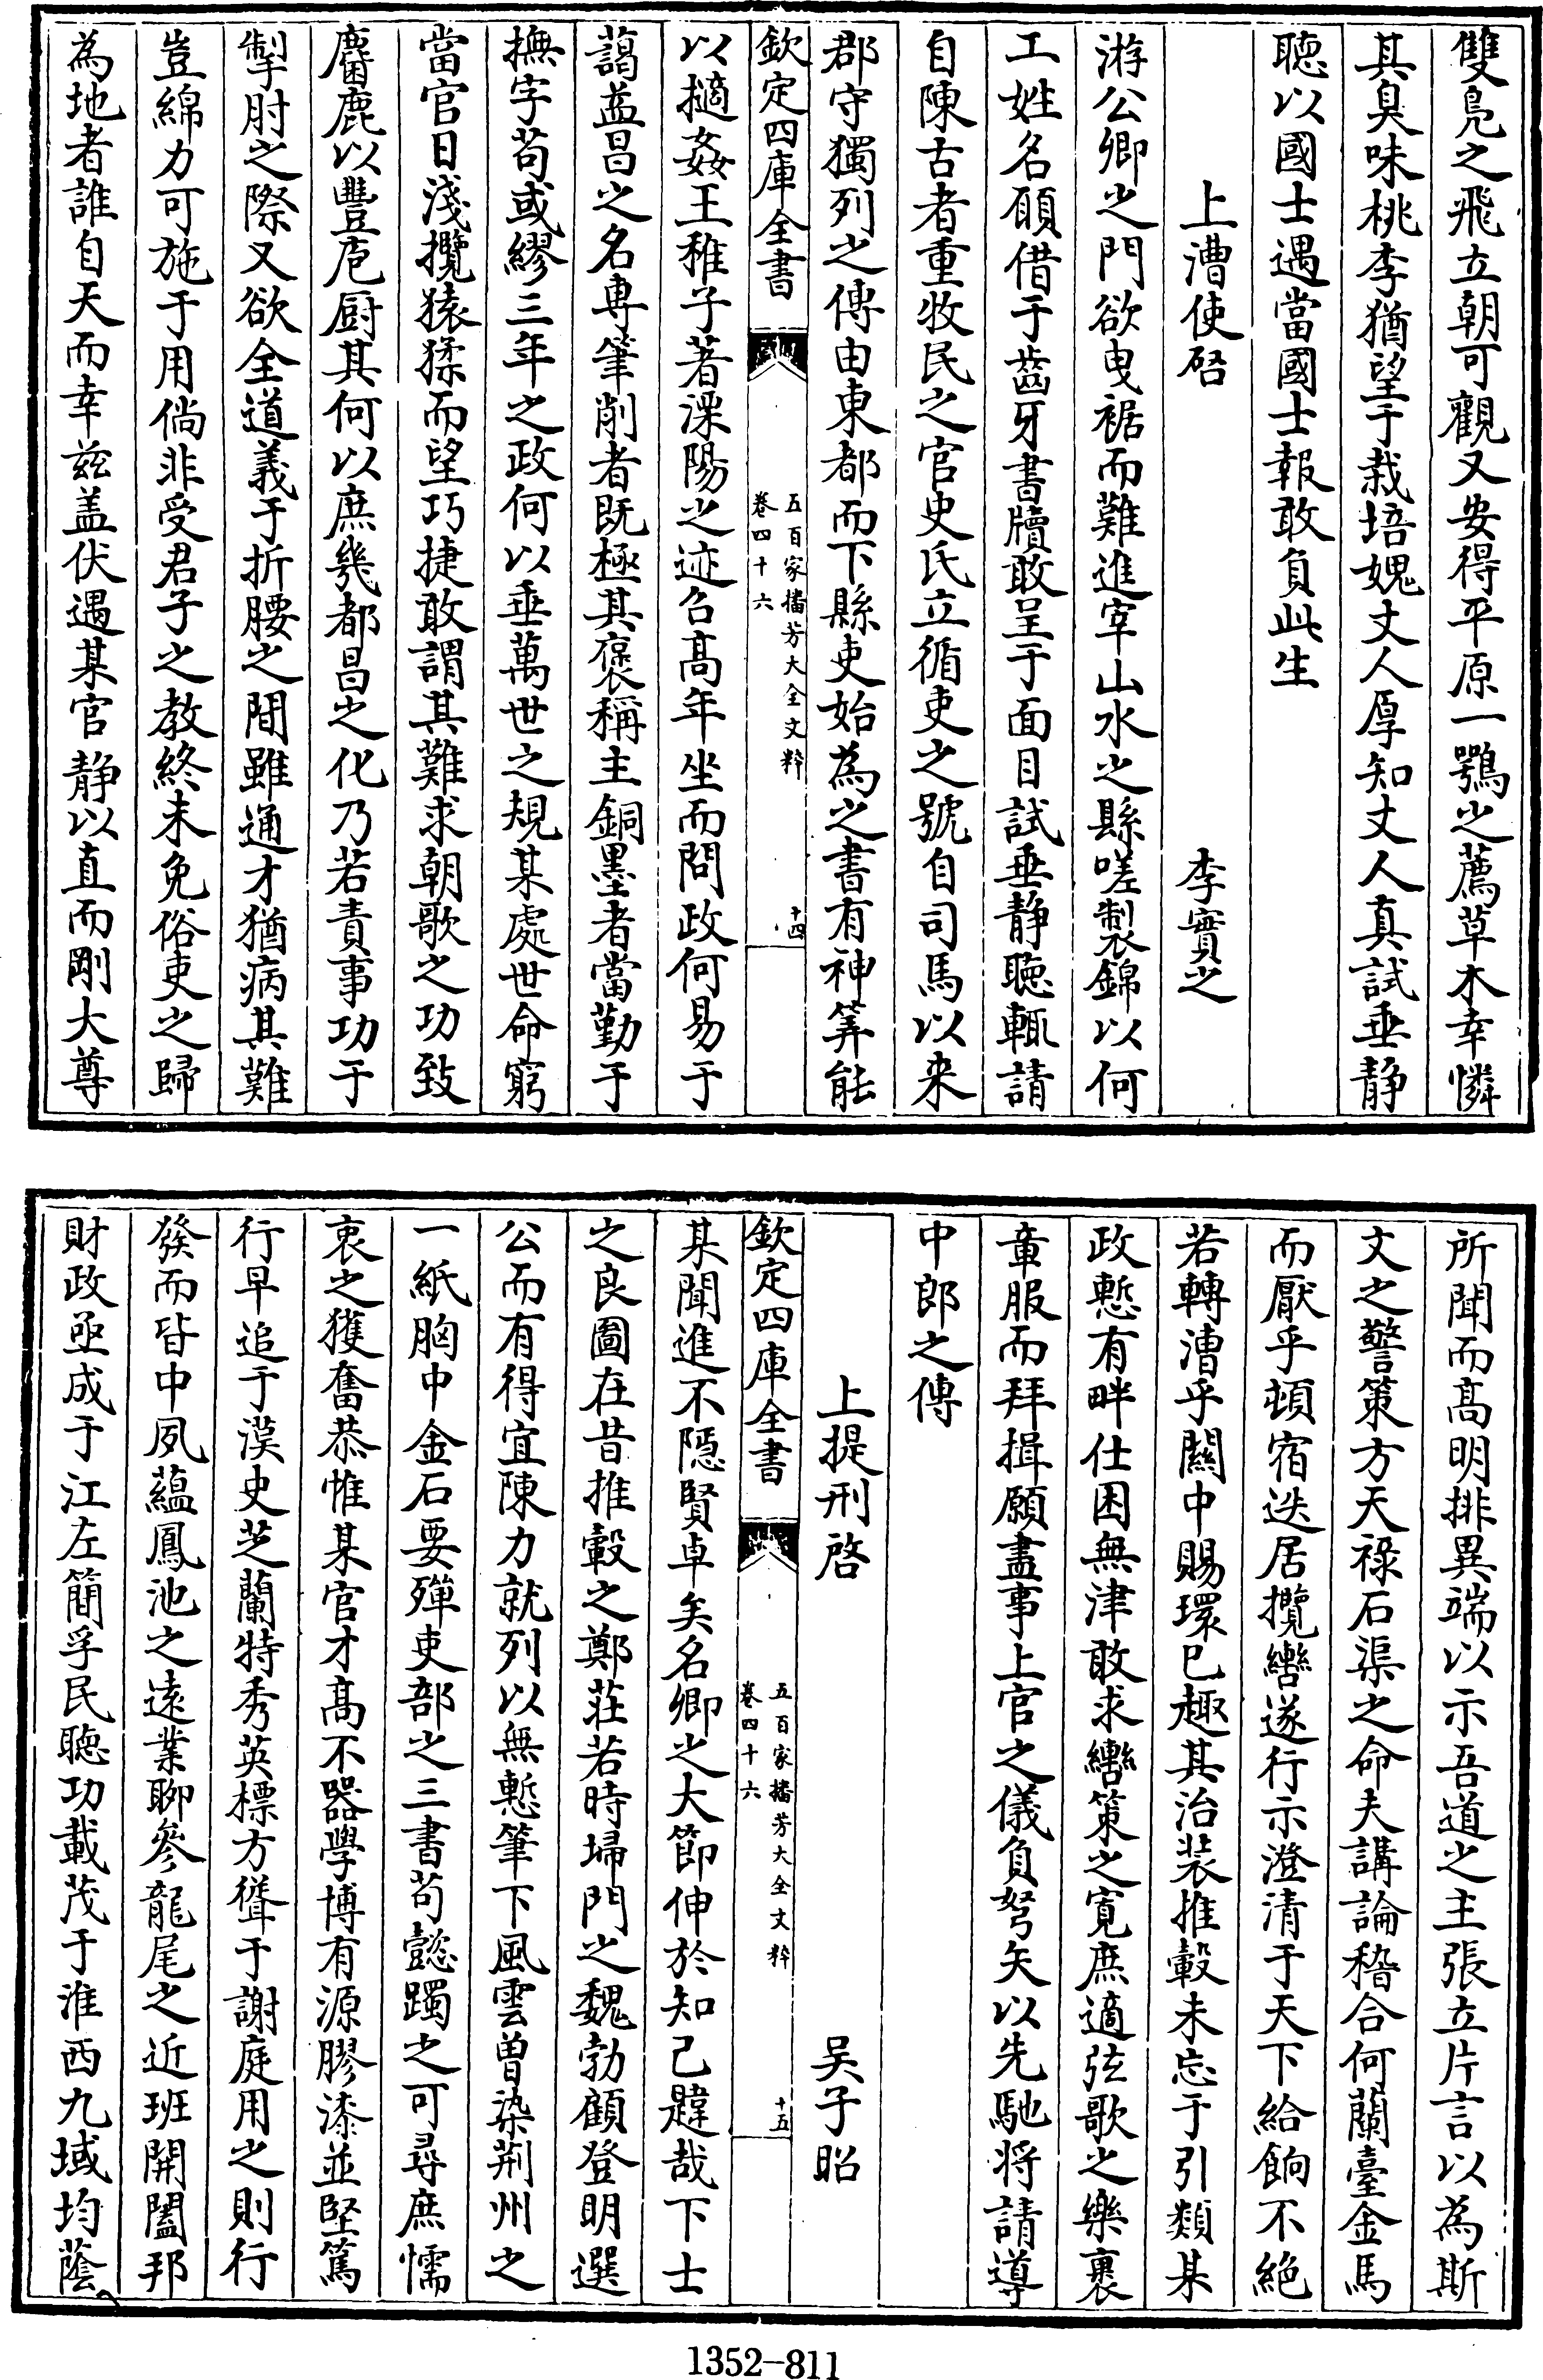 雙鳬之飛立朝可觀又安得平原一鶚之薦草木幸憐
其臭味桃李猶望于栽培媿丈人厚知丈人真試垂静
聽以國士遇當國士報敢負此生
上漕使啓
李實之
游公卿之門欲曳裾而難進宰山水之縣嗟製錦以何
工姓名願借于齒牙書牘敢呈于面目試垂静聽輒請
自陳古者重牧民之官史氏立循吏之號自司馬以来
郡守獨列之傳由東都而下縣吏始為之書有神筭能
欽定四庫全書
五百家播芳大全文粹
卷四十六
十四
以擿姦王稚子著溧陽之迹召高年坐而問政何易于
藹益昌之名專筆削者既極其褒稱主銅墨者當勤于
撫字茍或繆三年之政何以垂萬世之規某處世命窮
當官日淺攬猿猱而望巧捷敢謂其難求朝歌之功致
麕鹿以豐庖厨其何以庶幾都昌之化乃若責事功于
掣肘之際又欲全道義于折腰之間雖通才猶病其難
豈綿力可施于用倘非受君子之教終未免俗吏之歸
為地者誰自天而幸兹盖伏遇某官静以直而剛大尊
所聞而高明排異端以示吾道之主張立片言以為斯
文之警策方天禄石渠之命夫講論稽合何蘭臺金馬
而厭乎頓宿迭居攬轡遂行示澄清于天下給餉不絶
若轉漕乎關中賜環已趣其治裝推轂未忘于引類某
政慙有畔仕困無津敢求轡策之寛庶適弦歌之樂裹
章服而拜揖願盡事上官之儀負弩矢以先馳将請導
中郎之傳
上提刑啓
吴子昭
欽定四庫全書
五百家播芳大全文粹
卷四十六
十五
某聞進不隠賢卓矣名卿之大節伸於知己韙哉下士
之良圖在昔推轂之鄭莊若時埽門之魏勃顧登明選
公而有得宜陳力就列以無慙筆下風雲曽染荆州之
一紙胸中金石要殫吏部之三書茍懿躅之可尋庶懦
衷之獲奮恭惟某官才髙不器學博有源膠漆並堅篤
行早追于漢史芝蘭特秀英標方聳于謝庭用之則行
發而皆中夙蘊鳳池之遠業聊參龍尾之近班開闔邦
財政亟成于江左簡孚民聽功載茂于淮西九域均蔭
1352-811